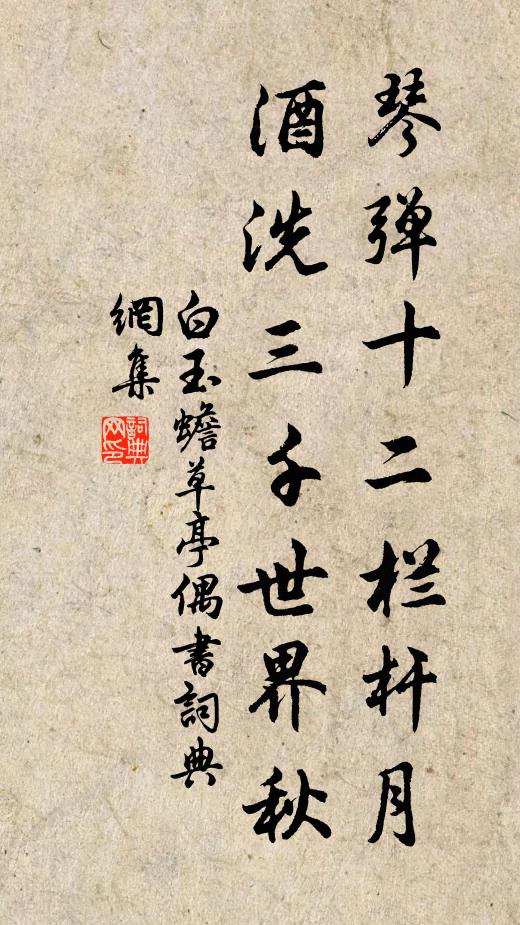 琴弹十二栏杆月
酒洗三千世界秋
白玉蟾草亭偶書詞典
網集
詞典
网印